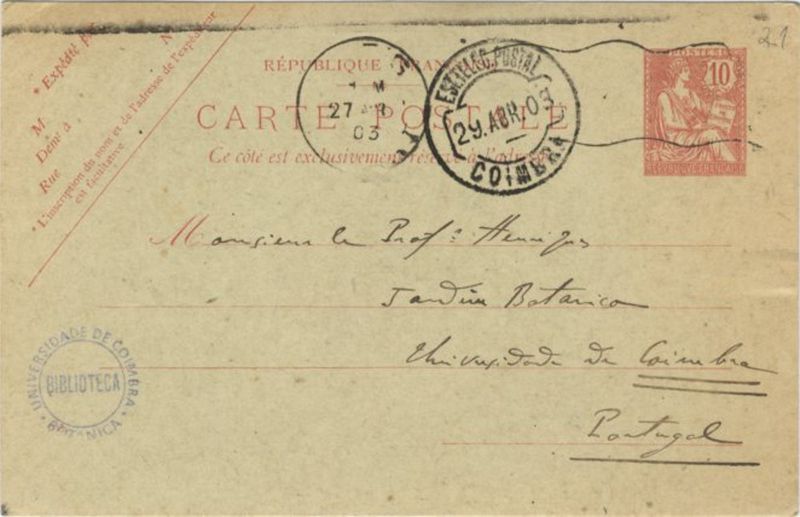 21
POSTES
10
RÉPUBLIQUE FRAN
CARTE POSTALE
Ce côté est exclusivement réservé à l'adresse
* Expédié par
N
M
Demt à
Rue
* L'inscription du nom et de l'adresse de l'expéditeur
est facultative
RÉPUBLIQUE FRANÇAISE
27
03
POSTAL
29. ABR. 03
COIMBRA
Monsieur le Prof. Henriques
Jardim Botanico
Universidade de Coimbra
Portugal
UNIVERSIDADE DE COIMBRA
BIBLIOTECA
BOTANICA